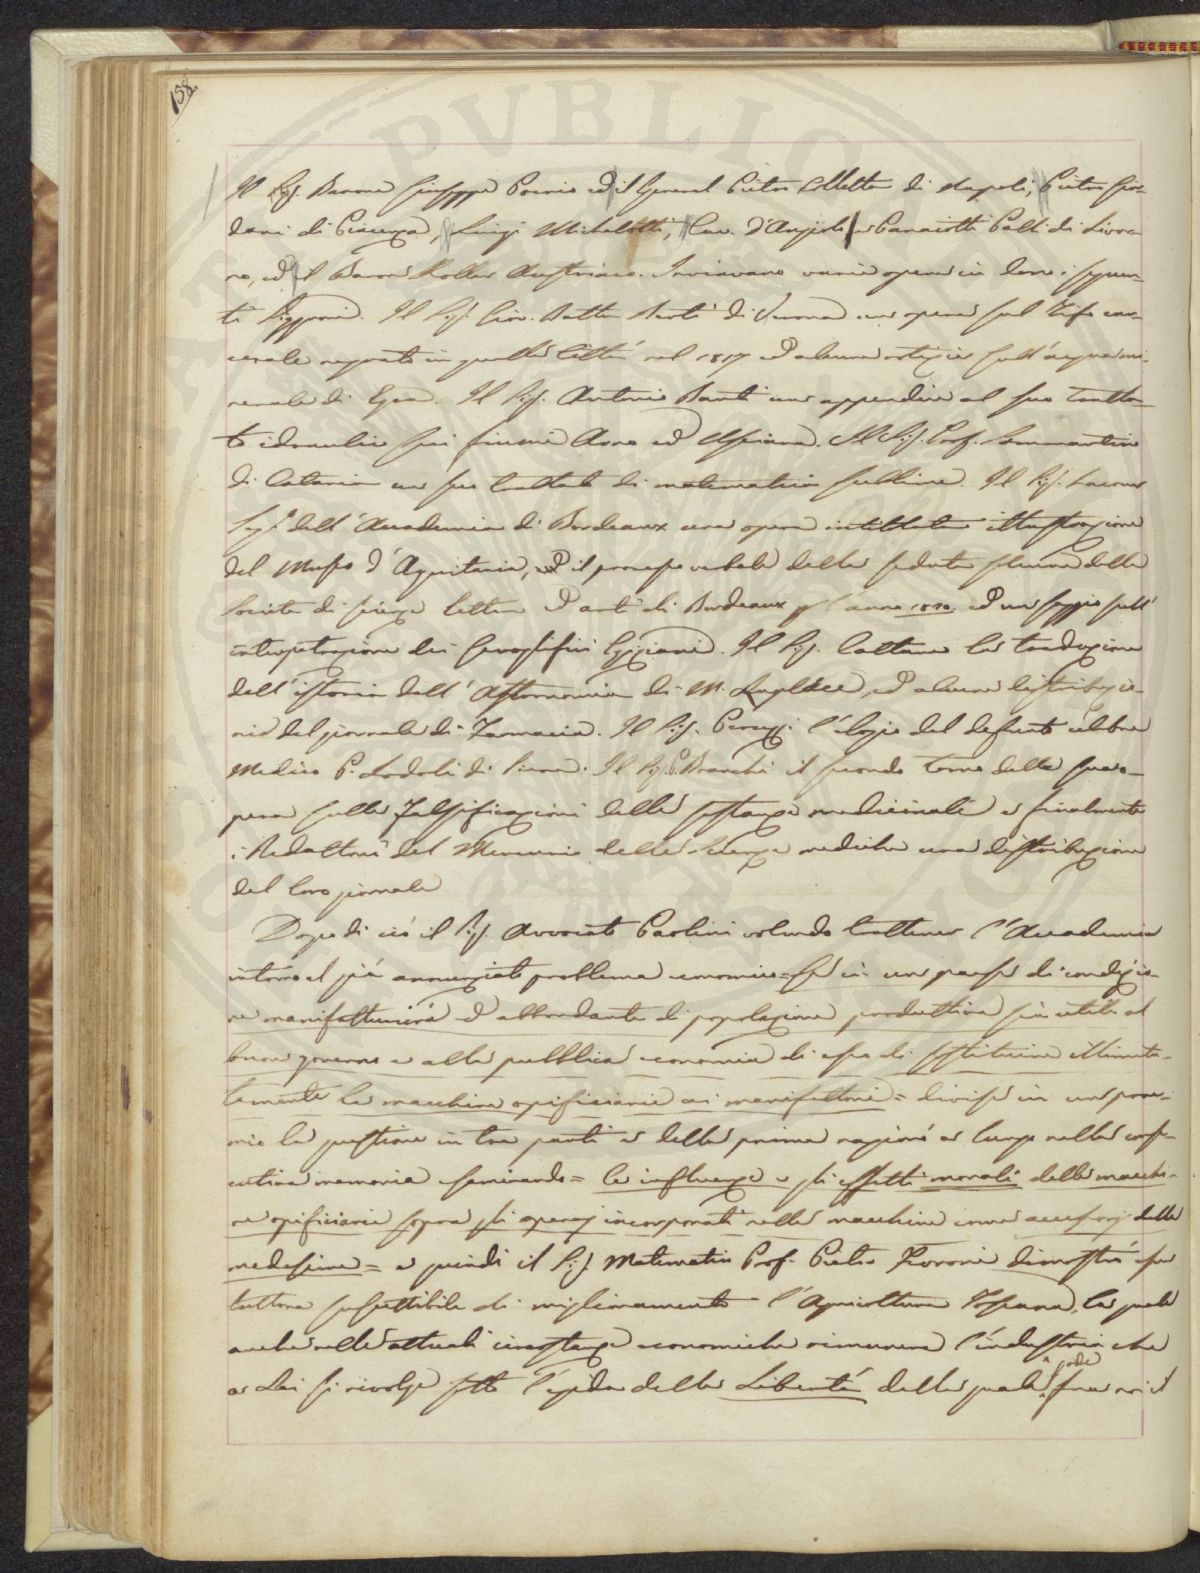 158.
Il Sig. Barone Giuseppe Poerio ed il General Pietro Colletta di Napoli, Pietro Gior-
dani di Piacenza, Luigi Michelotti, Cav. d'Angioli e Panaiotti Palli di Livor-
no, ed il Baron Koller Austriaco. Inviavano varie opere in dono i seguen-
ti Signori. Il Sig. Giov. Batta di Verona un opera sul Tifo car-
cerale regnato in quella Città nel 1817 ed alcune notizie sull'acqua mi-
nerale di. Il Sig. Antonio un appendice al suo Tratta-
to idraulico sui fiumi Arno ed. Il Sig. Prof. Sammartino
di Catania un suo trattato di matematica sublime. Il Sig. Lacour
Seg.o dell'Accademia di Bordeaux una opera intitolata illustrazione
del Museo d'Aquitania, ed il processo verbale della seduta solenne della
Società di scienze lettere ed arti di Bordeaux p l'anno 1820. ed un saggio sull'
interpetrazione dei Geroglifici Egiziani. Il Sig. Cattaneo la traduzione
dell'istoria dell'Astronomia di M. Laplace, ed alcune distribuzio-
ni del giornale di Farmacia. Il Sig. l'elogio del defunto celebre
Medico P. Lodoli di Siena. Il Sig. P. Branchi il secondo Tomo della sua o-
pera sulla Falsificazioni delle sostanze medicinali e finalmente
i Redattori del Mercurio delle Scienze mediche una distribuzione
del loro giornale
Dopo di ciò il Sig. Avvocato Paolini volendo trattener l'Accademia
intorno al già annunziato problema economico = Se in un paese di condizio-
ne manifatturiera ed abbondante di popolazione produttiva sia utile al
buon governo e alla pubblica economia di esso di sostituire illimita-
tamente le macchine opificiarie ai manifattori = divise in un proe-
mio la questione in tre parti e della prima ragionò a lungo nella conse-
cutiva memoria esaminando = le influenze e gli effetti morali delle macchi-
ne opificiarie sopra gli operaj incorporati nelle macchine come accessorj delle
medesime = e quindi il Sig. Matematico Prof. Pietro Ferroni dimostrò esser
tuttora suscettibile di miglioramento l'Agricoltura Toscana, la quale
anche nelle attuali circostanze economiche rimunera l'industria che
a Lei si rivolge sotto l'egida della Libertà della quale gode fra noi il